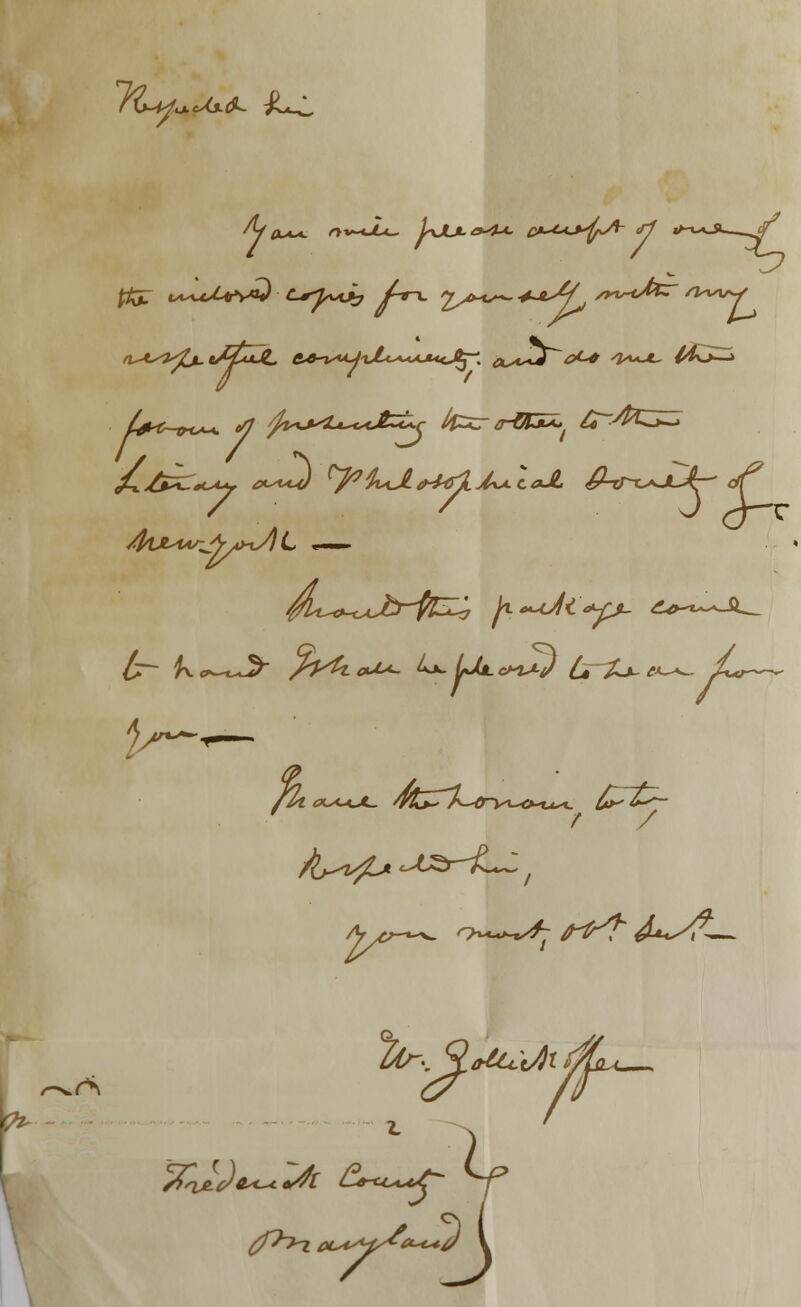 Respected Sir
You will please accept of one of
the enclosed copies for yourself, with my
respectful compliments, and do me the
favour of presenting the other, to the
Literary and Philosophical Society of
Newyork —
Should this package come
to hand Please be pleased to
you —
I have the honour, to be,
Respected Sir,
your most obt Servt
Frederick County
Maryland